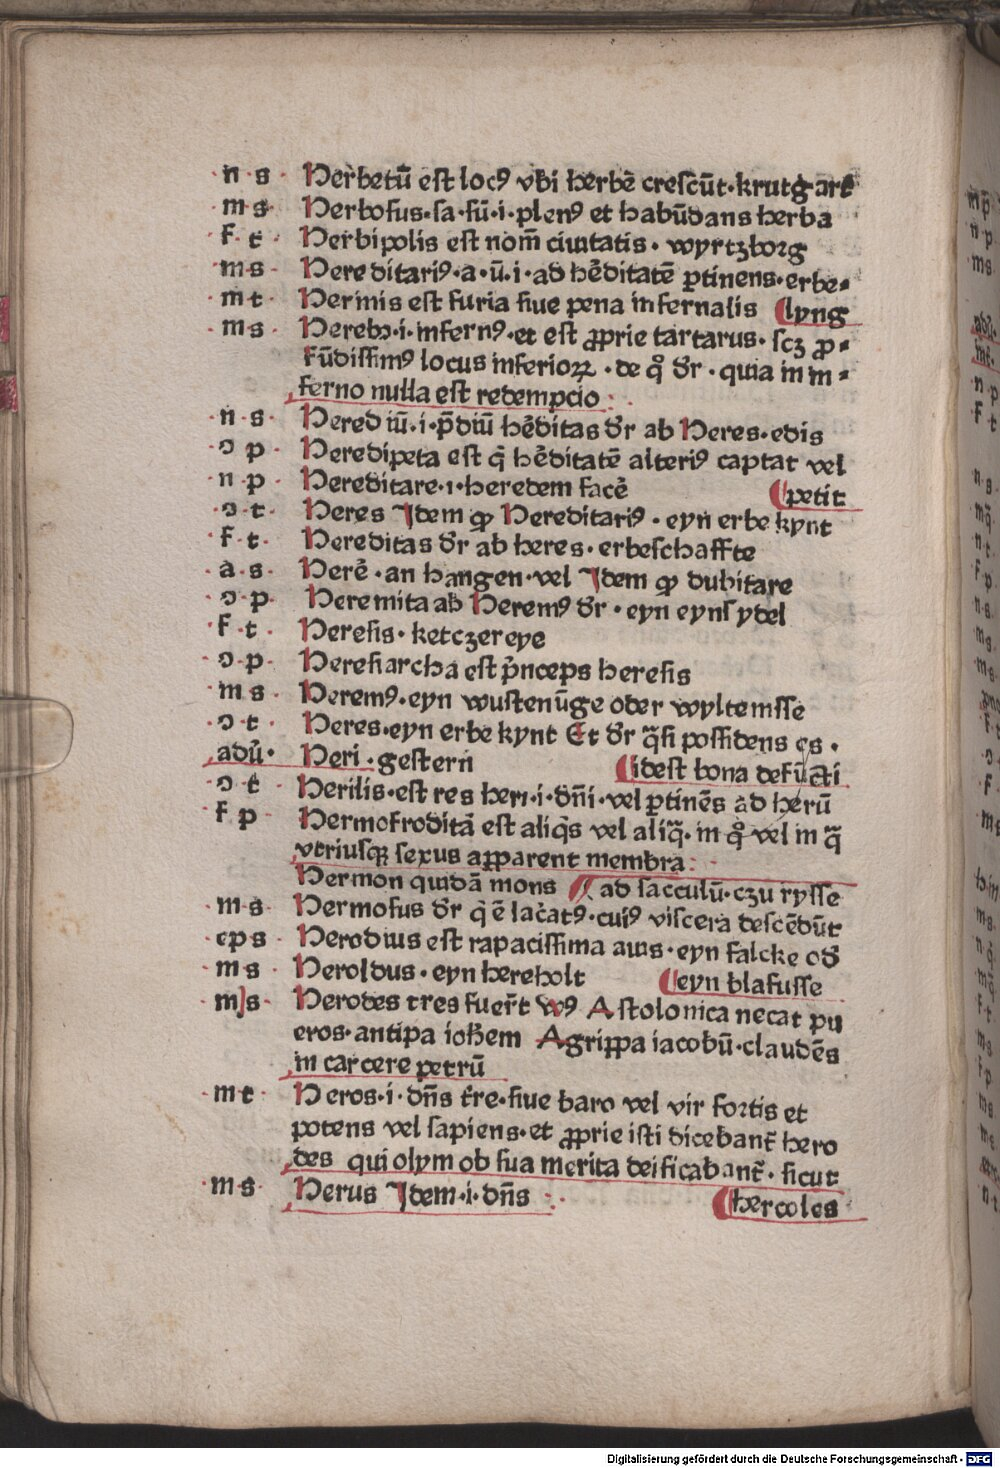 n s Herbetū est locꝰ vbi herbē crescūt·krutgart
m s Herbosus·sa·sū·i·plenꝰ et habūdans herba
f t Herbipolis est nom̄ ciuitatis· wyrtzborg
m s Hereditariꝰ·a·ū·i·ad hēditatē ꝑtinens·erbe-
m t Hermis est furia siue pena infernalis lyng
m s Herebꝰ·i·infernꝰ·et est ꝓprie tartarus·scꝫ ꝓ-
fūdissimꝰ locus inferioꝝ·de qͦ dr̄·quia in in-
ferno nulla est redempcio:
n s Herediū·i·p̄diū hēditas dr̄ ab Heres·edis
ɔ p Heredipeta est q̄ hēditatē alteriꝰ captat vel
n p Hereditare·i·heredem facē petit
ɔ t Heres Idem ꝙ Hereditariꝰ·eyn erbe kynt
f t Hereditas dr̄ ab heres·erbeschaffte
a s Herē·an hangen·vel Idem ꝙ dubitare
ɔ p Heremita ab Heremꝰ dr̄·eyn eynsydel
f t Heresis·ketczereye
ɔ p Heresiarcha est p̄nceps heresis
m s Heremꝰ·eyn wustenūge oder wyltemsse
ɔ t Heres·eyn erbe kynt Et dr̄ q̄si possidens es·
adū· Heri·gestern idest bona defūcti
ɔ t Herilis·est res heri·i·dn̄i·vel ꝑtinēs ad herū
f p Hermofroditā est aliq̄s vel aliq̄·in qͦ vel in q̄
vtriusqꝫ sexus apparent membra:
Hermon quidā mons ad sacculū·czu rysse
m s Hermosus dr̄ q̄ ē lac̄atꝰ·cuiꝰ viscera descēdūt
eps Herodius est rapacissima auis·eyn falcke od̄
m s Heroldus·eyn hereholt eyn blasusse
m s Herodes tres fuer̄t Wꝰ Astolonica necat pu
eros·antipa ioh̄em Agrippa iacobū·claudēs
in carcere petrū
m t Heros·i·dn̄s tr̄e·siue baro vel vir fortis et
potens vel sapiens·et ꝓprie isti dicebant̄ hero
des qui olym ob sua merita deificabant̄·sicut
m s Herus Idem·i·dn̄s hercoles
Digitalisierung gefördert durch die Deutsche Forschungsgemeinschaft - DFG